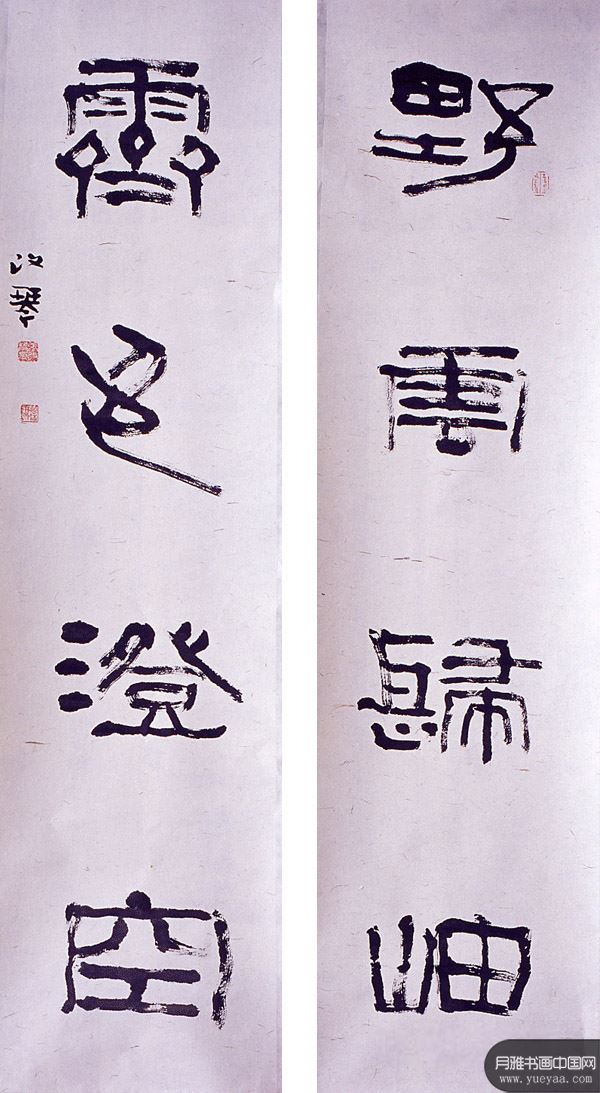 野雲歸岫
霽色澄空
改琴
月雅书画中国网
www.yueyaa.com